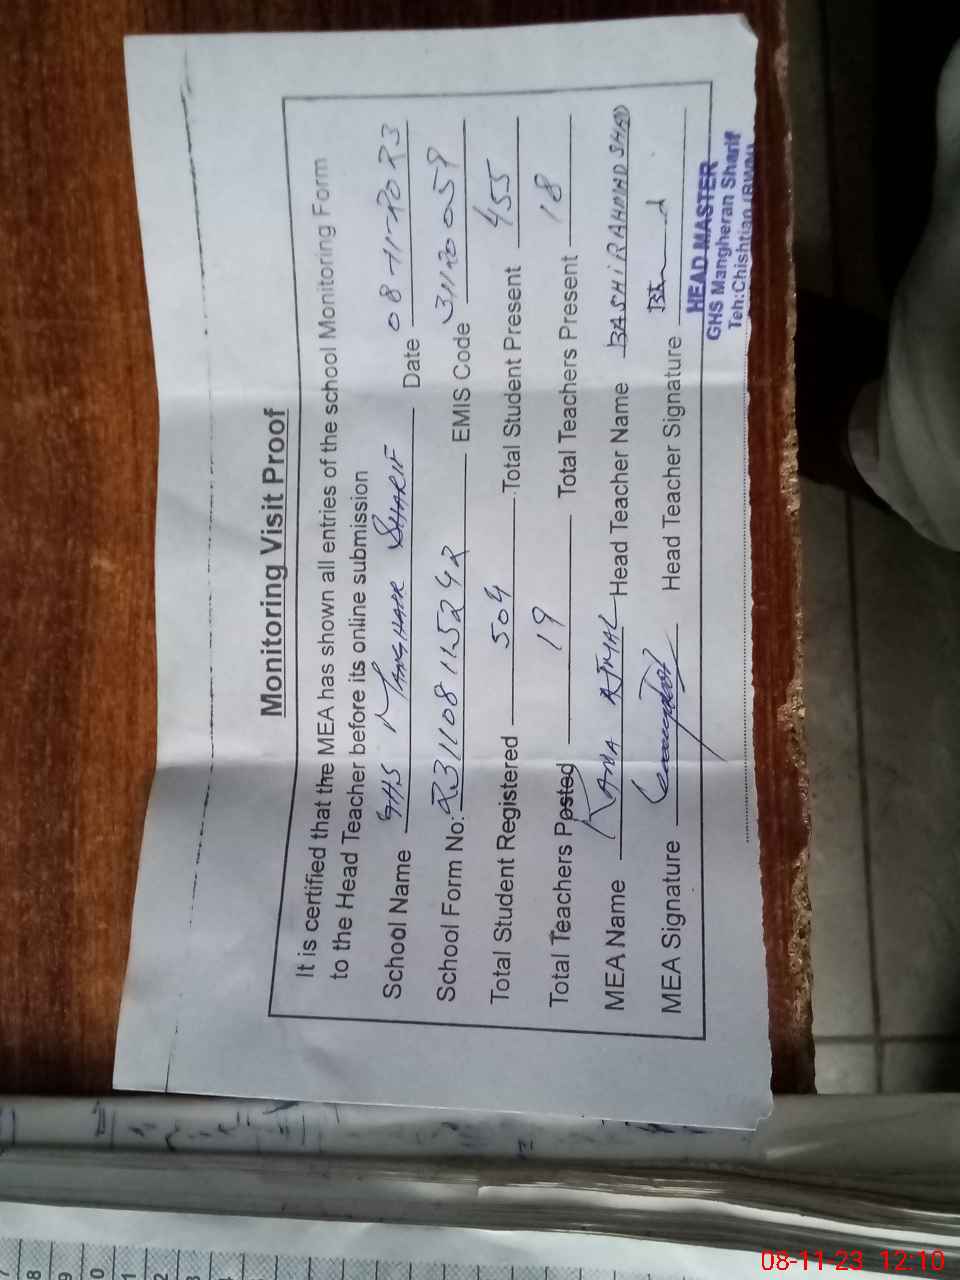 Monitoring Visit Proof
It is certified that the MEA has shown all entries of the school Monitoring Form
to the Head Teacher before its online submission
School Name GHS MANGHARR SHARIF Date 08-11-2023
School Form No: R31108115242 EMIS Code 31120059
Total Student Registered 504 Total Student Present 455
Total Teachers Posted 19 Total Teachers Present 18
MEA Name RANA AJMAL Head Teacher Name BASHIR AHMAD SHAD
MEA Signature Head Teacher Signature
HEAD MASTER
GHS Mangheran Sharif
Teh:Chishtian (BWN)
08-11-23 12:10